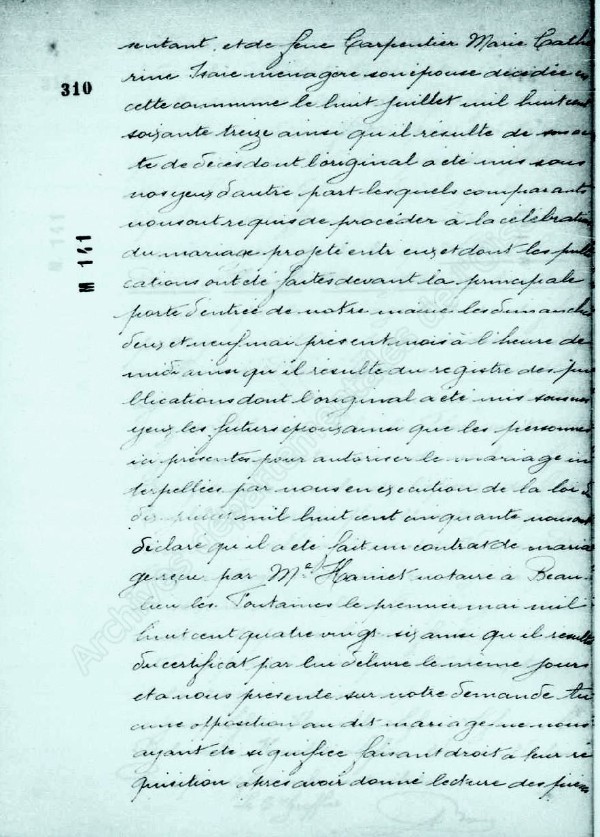 sentant, et de feue Carpentier Marie Cathe
rine Isare ménagère son épouse décédée en
310
cette commune le huit juillet mil huit cent
soixante treize ainsi qu'il résulte de son ac
te de décès dont l'original a été mis sous
nos yeux d'autre part lesquels comparants
nous ont requis de procéder à la célébration
M 141
du mariage projeté entr eux et dont les publi
cations ont été faites devant la principale
porte d'entrée de notre mairie les dimanches
deux et neuf mai présent mois à l'heure de
midi ainsi qu'il résulte du registre des pu
blications dont l'original a été mis sous nos
yeux, les futurs époux ainsi que les personnes
ici présentes pour autoriser le mariage in
terpellées par nous en exécution de la loi du
dix juillet mil huit cent cinquante nous ont
déclaré qu'il a été fait un contrat de maria
ge reçu par Me Hamet notaire à Beau
lieu les Fontaines le premier mai mil
huit cent quatre vingt six ainsi qu'il résulte
du certificat par lui délivré le même jour
et a nous présenté sur notre demande Au
cune opposition au dit mariage ne nous
ayant été signifiée faisant droit à leur ré
quisition après avoir donné lecture des pièces
Archives départementales de